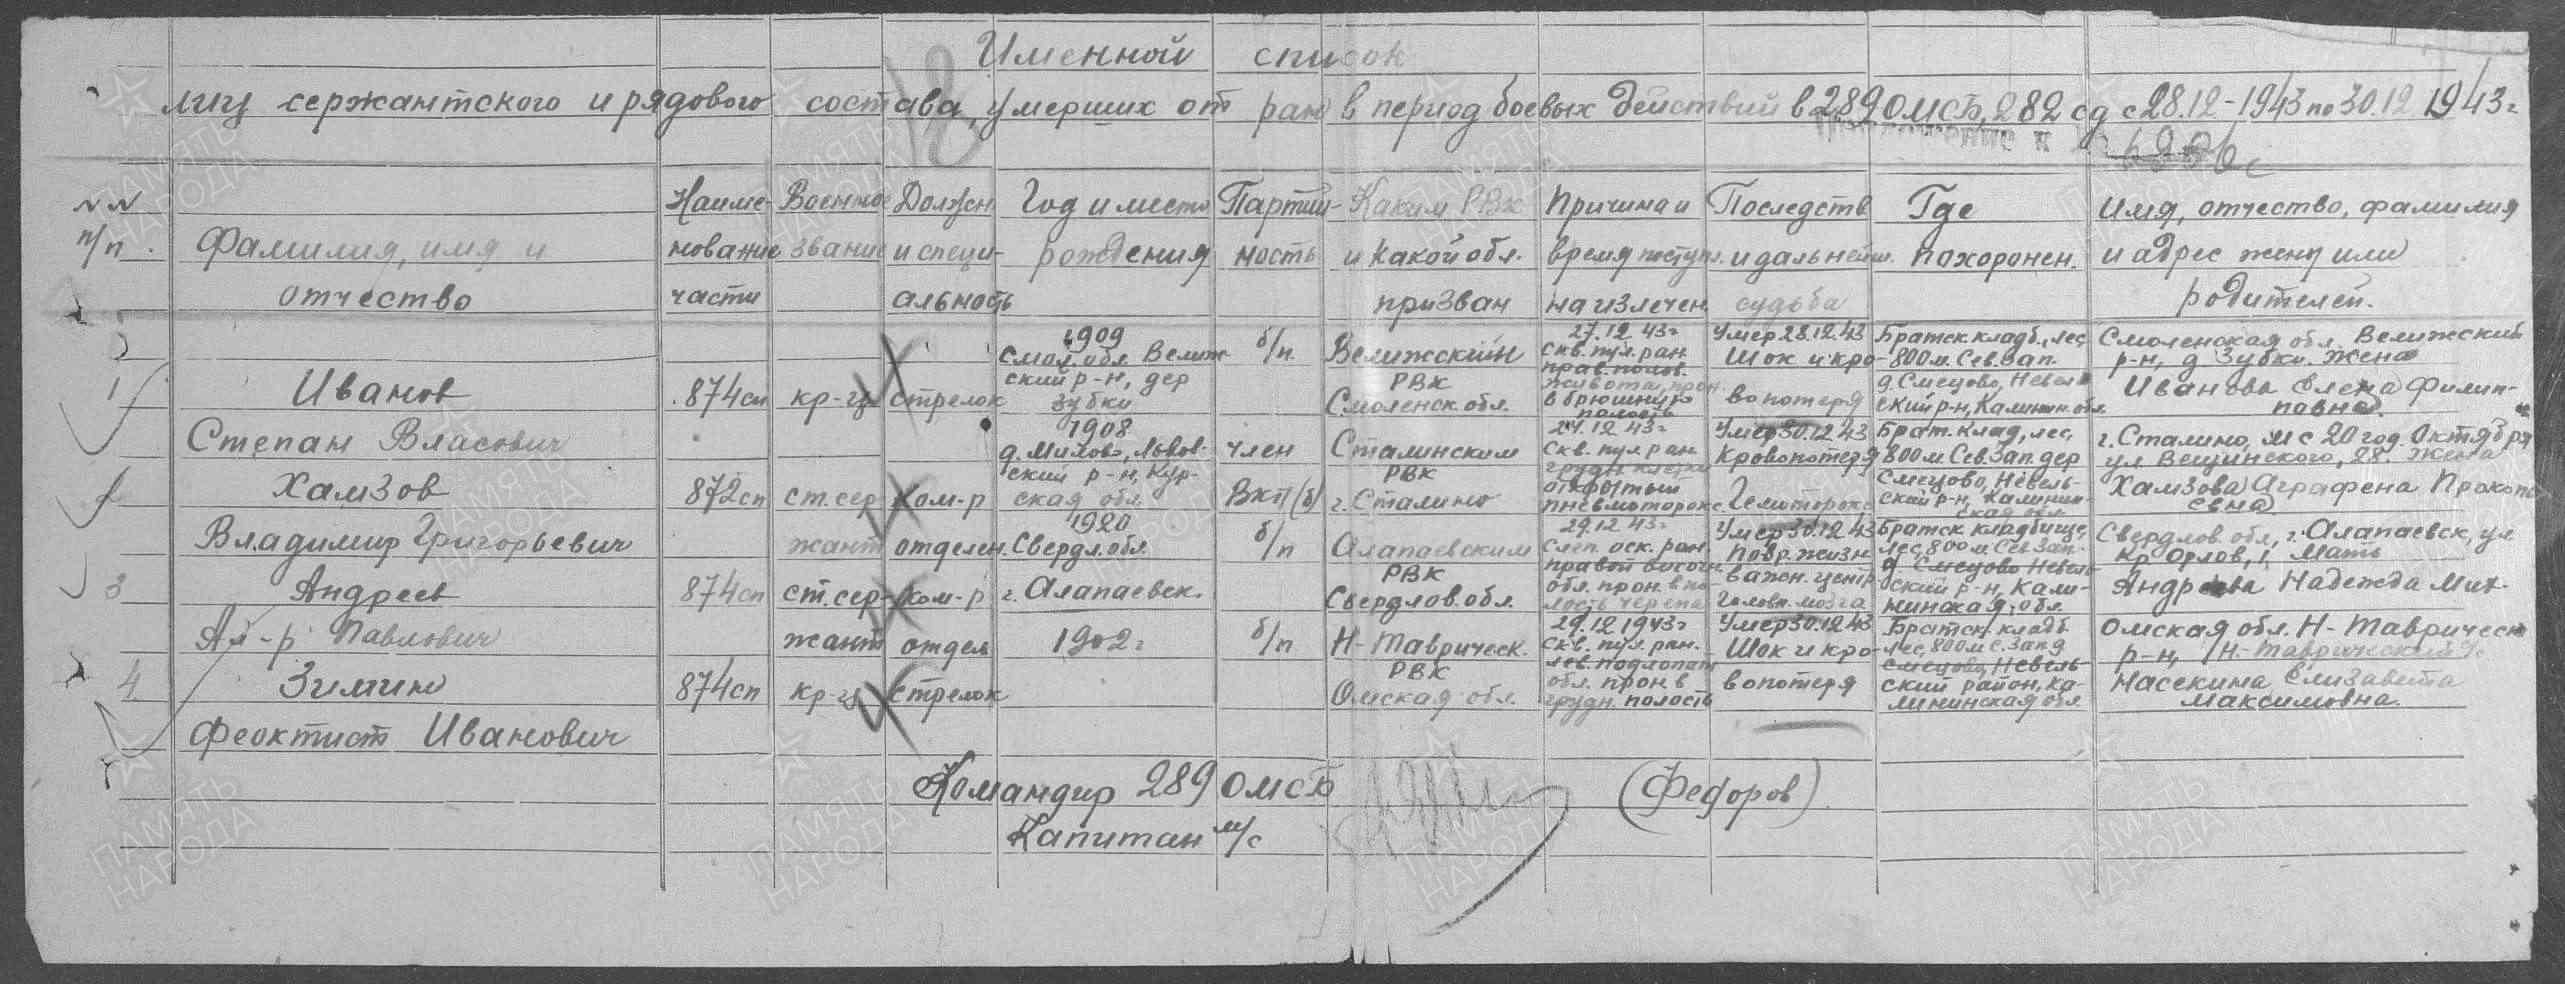 Именной список
лиц сержантского и рядового состава, умерших от ран в период боевых действий в 289 омсб, 282 сд с 28.12-1943 по 30.12 1943 г
№ № Наиме- Военное Должн Год и место Партий- Каким РВК Причина и Последств Где Имя, отчество, фамилия
п/п. Фамилия, имя и нование звание и специ- рождения ность и какой обл. время поступл. и дальнейш. похоронен. и адрес жены или
отчество части альность призван на излечен. судьба родителей.
1 Иванов Степан Власович
874 сп
кр-ц
стрелок
1909
Смол. обл. Велиж-
ский р-н, дер
Зубки
б/п
Велижский
РВК
Смоленск. обл.
27.12 43 г
Скв. пул. ран.
прав. полов.
живота, прон.
в брюшную
полость
Умер 28.12.43
Шок и кро-
вопотеря
Братск кладб., лес,
800 м. Сев. Зап.
д. Смецово, Невель
ский р-н, Калинин. обл.
Смоленская обл. Велижский
р-н, д Зубки. Жена
Иванова Елена Филип-
повна.
Хамзов
Владимир Григорьевич
872 сп
ст. сер
жант
ком-р
отделен.
1908
ский р-н, Кур-
ская обл.
член
ВКП(б)
Сталинским
РВК
г. Сталино
27.12 43 г
Скв. пул ран
грудн клетки
открытый
пневмоторокс.
Умер 30.12 43
Кровопотеря
Гемоторокс
Брат. клад, лес,
800 м Сев. Зап. дер
Смецово, Невель-
ский р-н, Калинин-
ская обл.
г. Сталино, 20 год. Октября
28. Жена
Хамзова Аграфена Прокопь
евна
3 Андреев
Ал-р Павлович
874 сп
ст. сер-
жант
ком-р
отдел
1920
Свердл. обл.
г. Алапаевск.
б/п
Алапаевским
РВК
Свердлов. обл.
29.12 43 г
Слеп. оск. ран.
правой височн
обл. прон. в по
лость черепа
Умер 30.12.43
Повр. жизн
важн. центр
Головн. мозга
Братск кладбище,
лес, 800 м Сев Зап.
д. Смецово Невель
ский р-н, Кали-
нинская, обл.
Свердлов. обл, г. Алапаевск, ул
Кр Орлов, 1, Мать
Андреева Надежда Мих.
4 Зимин
Феоктист Иванович
874 сп
кр-ц
стрелок
1902 г
б/п
Н-Таврическ.
РВК
Омская обл.
29.12 1943 г
Скв. пул. ран.
лев. подлопат
обл. прон в
грудн. полость
Умер 30.12 43
Шок и кро-
вопотеря
Братск. кладб.
лес, 800 м С. Зап д
Смецово, Невель-
ский район, Ка-
лининская обл.
Омская обл. Н-Таврическ
р-н, Н-Таврический
Насекина Елизавета
Максимовна.
Командир 289 омсб
Капитан м/с
(Федоров)
ПАМЯТЬ
НАРОДА